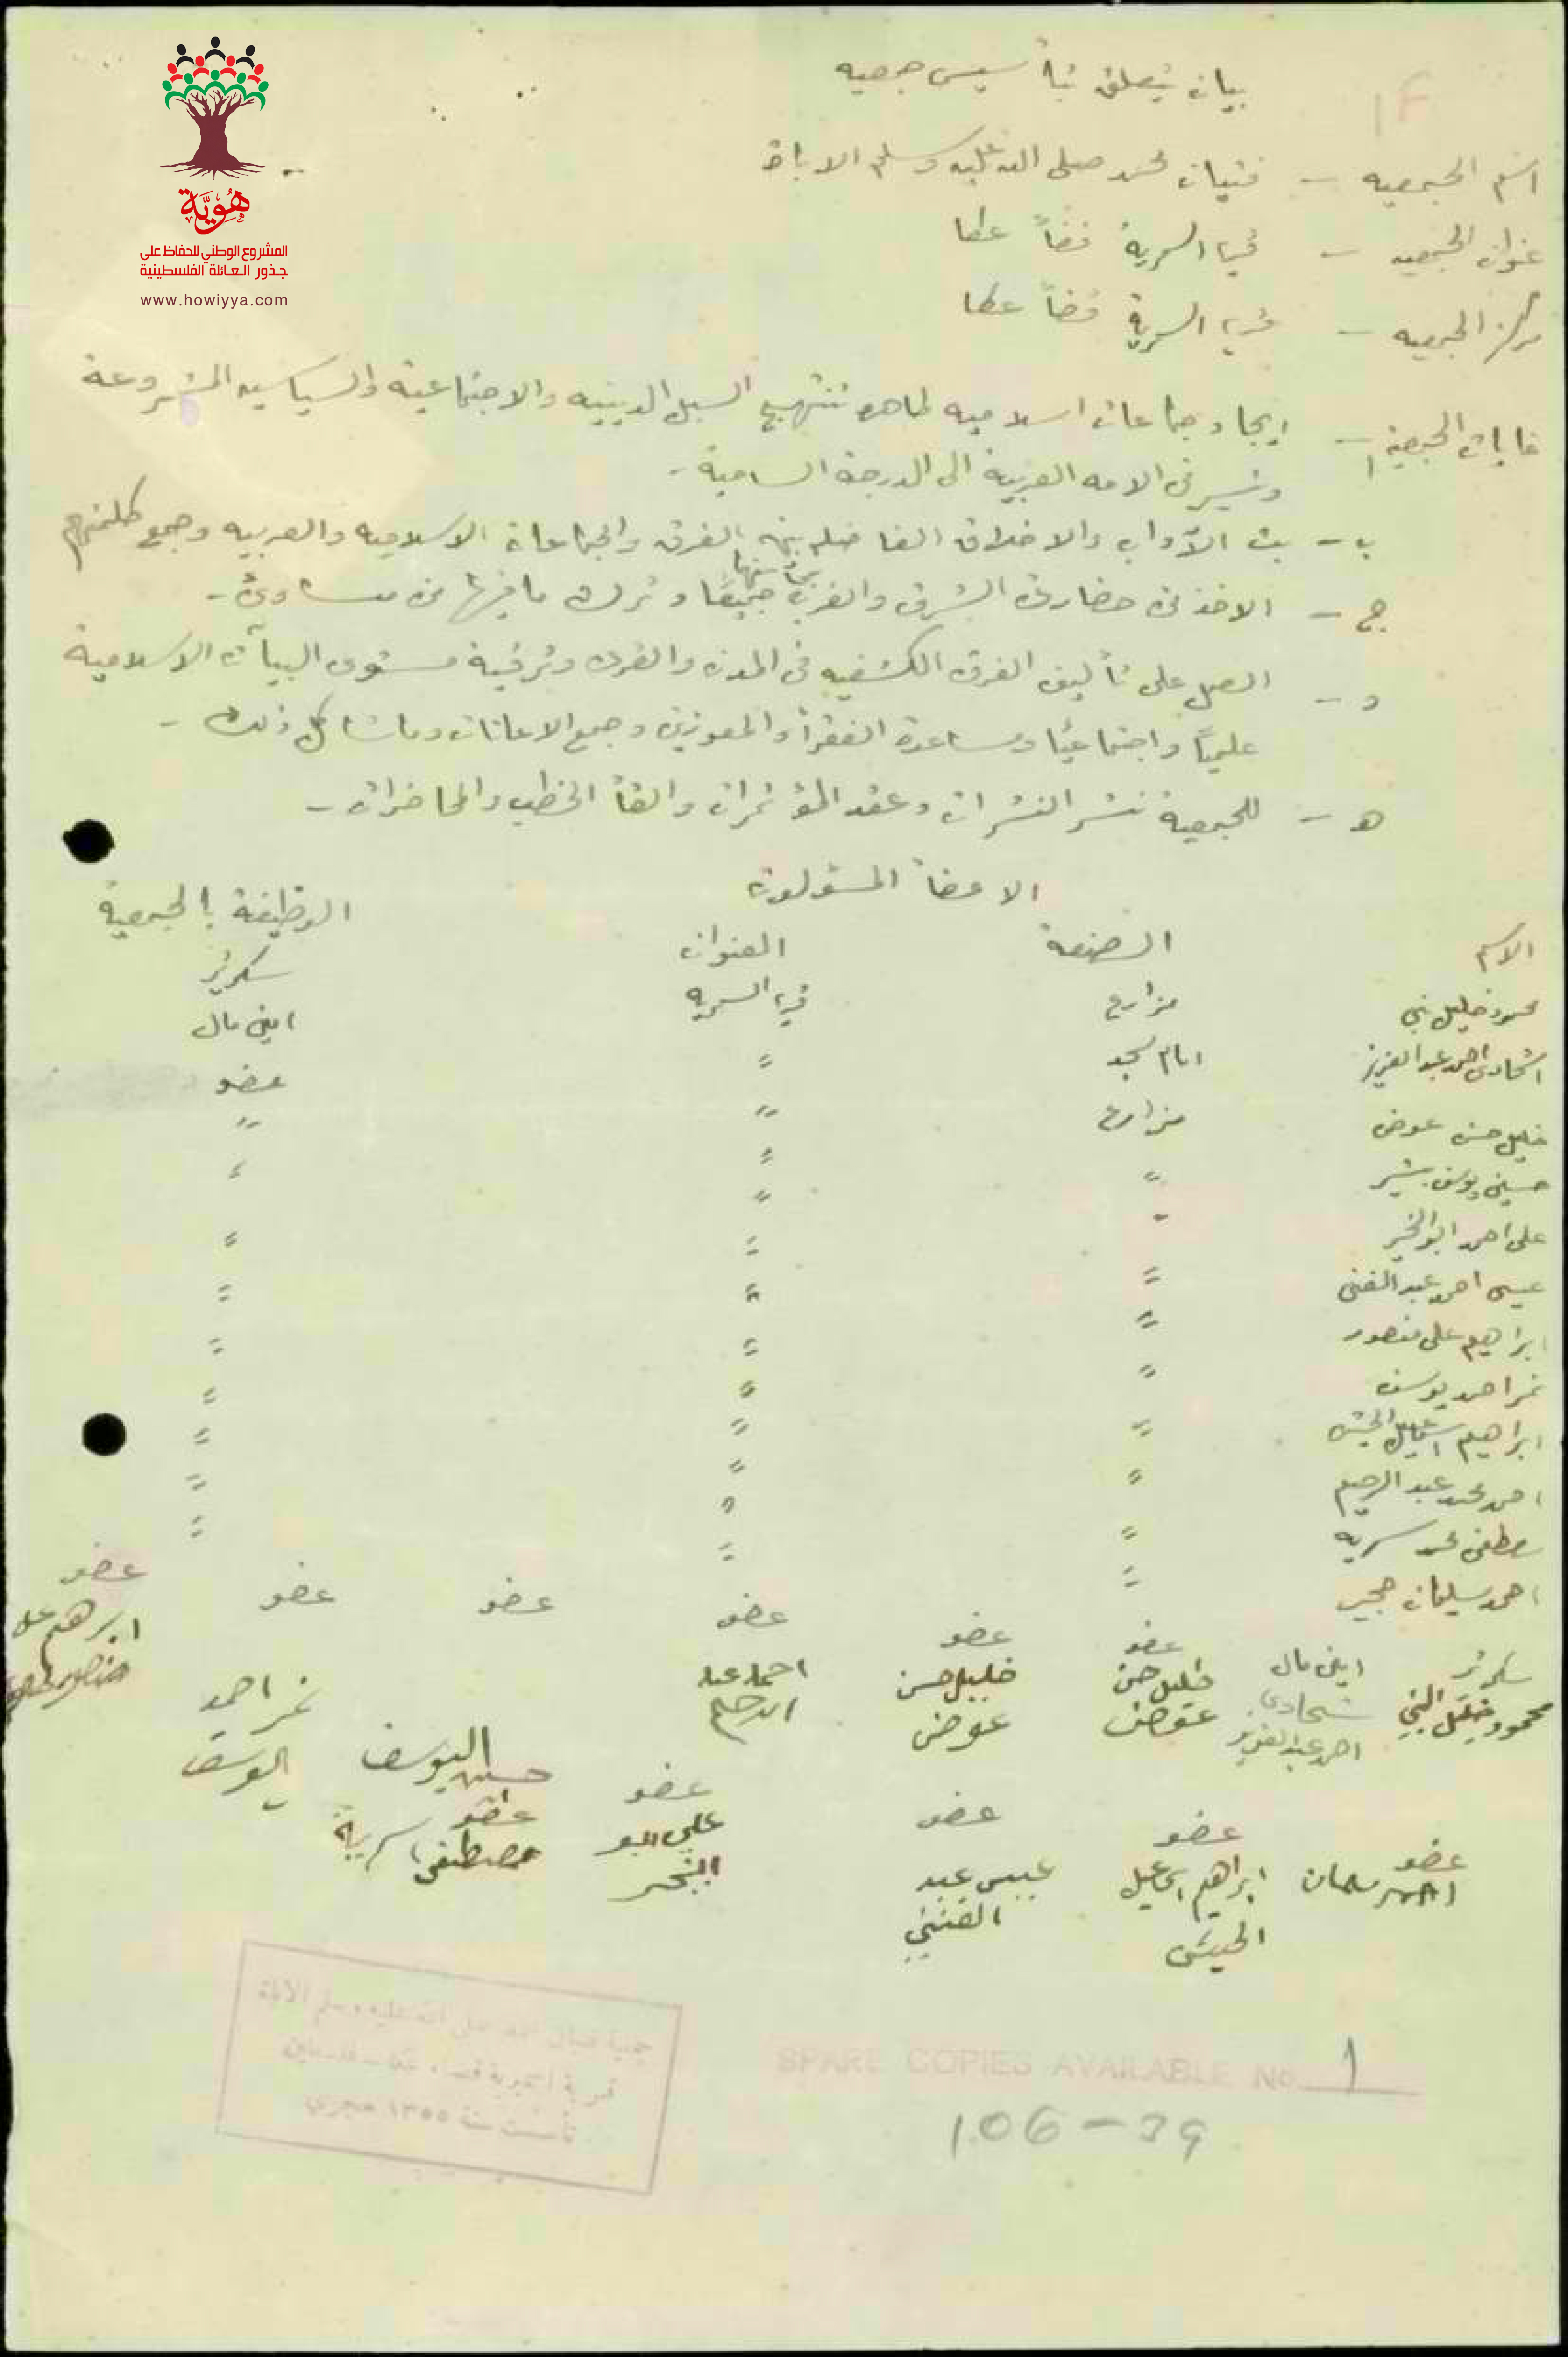 هُوِيَّة
المشروع الوطني للحفاظ على
جذور العائلة الفلسطينية
www.howiyya.com
بيان يتعلق بتأسيس جمعيه
اسم الجمعيه – فتيان محمد صلى الله عليه وسلم الاباة
عنوان الجمعيه – قرية السميرية قضأ عكا
مركز الجمعيه – قرية السميرية قضأ عكا
غايات الجمعية ا – ايجاد جماعات اسلاميه طاهره تنتهج السبل الدينيه والاجتماعية والسياسيه المشروعة
وتسير في الامه العربية الى الدرجة السامية –
ب – بث الآداب والاخلاق الفاضله بين الفرق والجماعات الاسلاميه والعربيه وجمع كلمتهم
ج – الاخذ من حضارة الشرق والغرب بمحاسنها جميعًا وترك ما فيها من مساوئ –
د – العمل على تأليف الفرق الكشفيه في المدن والقرى وترقية مستوى البيأت الاسلامية
علميًا واجتماعيًا ومساعدة الفقرأ والمعوزين وجمع الاعانات وما شاكل ذلك –
ه – للجمعية نشر النشرات وعقد المؤتمرات والقأ الخطب والمحاضرات –
الاعضأ المسؤولون
الاسم الصنعة العنوان الوظيفة بالجمعية
محمود خليل بني مزارع قرية السميريه سكرتير
اشحادى احمد عبد العزيز امام مسجد " امين مال
خليل حسن عوض مزارع " عضو
حسين يوسف بشير " " "
على احمد ابو الخير " " "
عيسى احمد عبد الغني " " "
ابراهيم على منصور " " "
نمر احمد يوسف " " "
ابراهيم اسماعيل الحيش " " "
احمد محمد عبد الرحيم " " "
مصطفى محمد سريه " " "
احمد سليمان حجير " " "
سكرتير امين مال عضو عضو عضو عضو عضو عضو
محمود خليل البني شحادى خليل حسن خليل حسن احمد عبد نمر احمد ابرهم على
احمد عبد العزيز عوض عوض الرحيم حسين اليوسف اليوسف منصور
عضو عضو عضو عضو عضو
احمد سلمان ابراهيم اسماعيل عيسى عبد علي ابو مصطفى سرية
الحيش الغني الخير
جمعية فتيان محمد صلى الله عليه وسلم الأباة
قرية السميرية قضاء عكا – فلسطين
تأسست سنة ١٣٥٥ هجري
SPARE COPIES AVAILABLE No. 1
106-39